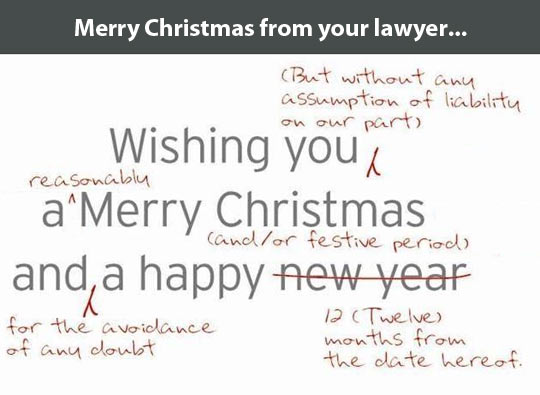 Merry Christmas from your lawyer...
(But without any
assumption of liability
on our part)
Wishing you
reasonably
a Merry Christmas
(and/or festive period)
and a happy new year
for the avoidance
of any doubt
12 (Twelve)
months from
the date hereof.